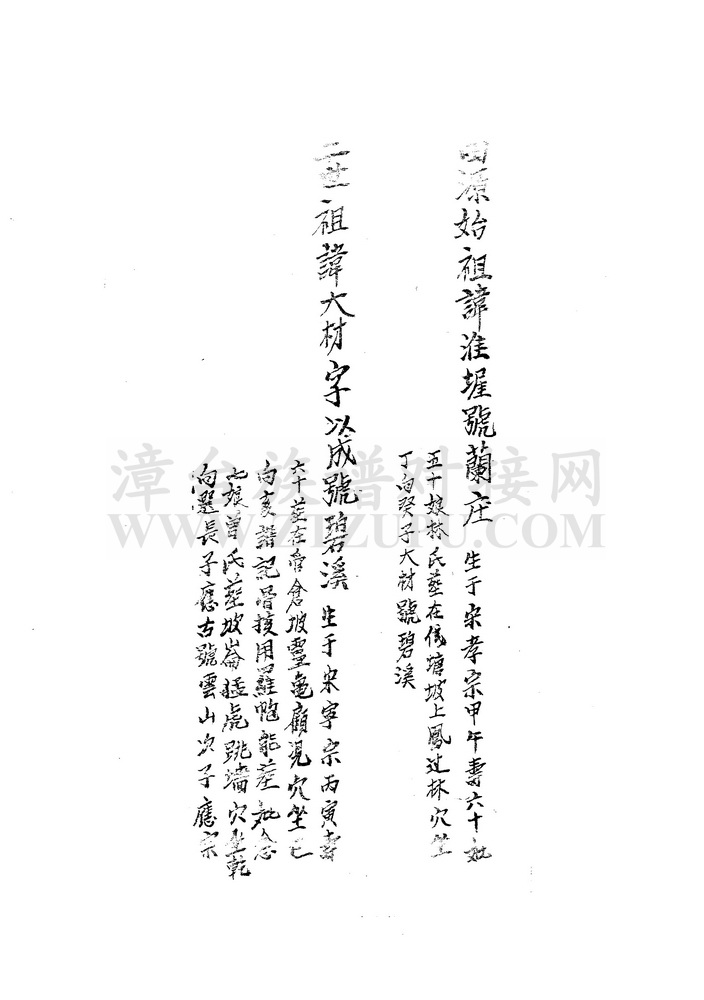 田源始祖諱淮堐號蘭庄 生于宋孝宗甲午壽六十妣
五十娘林氏葬在後塘坡上鳳过林穴坐
丁向癸子大材號碧溪
二世祖諱大材字以成號碧溪 生于宋寧宗丙寅壽
六十葬在官倉坡靈龜顧児穴坐巳
向亥譜記骨核用羅鞄能葬妣念
七娘曾氏葬坡崙猛虎跳墻穴坐乾
向巽長子應古號雲山次子應宗
漳台族谱对接网
WWW.ZTZUPU.COM